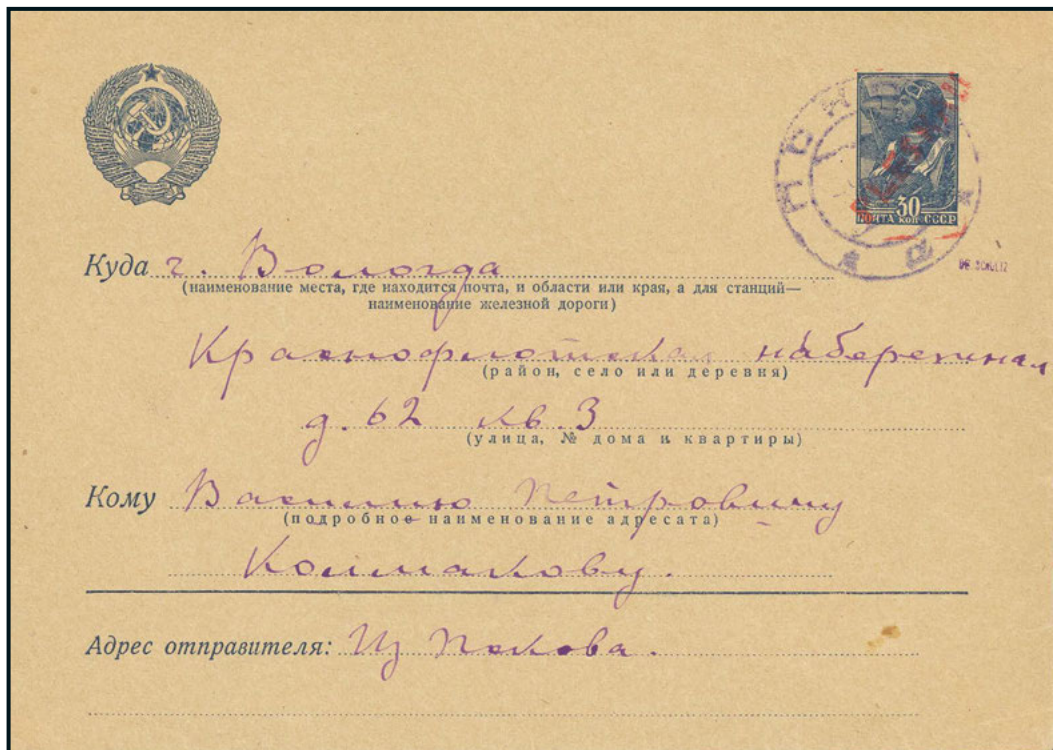 30
ПОЧТА КОП СССР
Куда г. Вологда
(наименование места, где находится почта, и области или края, а для станций—
наименование железной дороги)
Краснофлотская набережная
(район, село или деревня)
д. 62 кв. 3
(улица, № дома и квартиры)
Кому Василию Петровичу
(подробное наименование адресата)
Колмакову.
Адрес отправителя: Из Пскова.